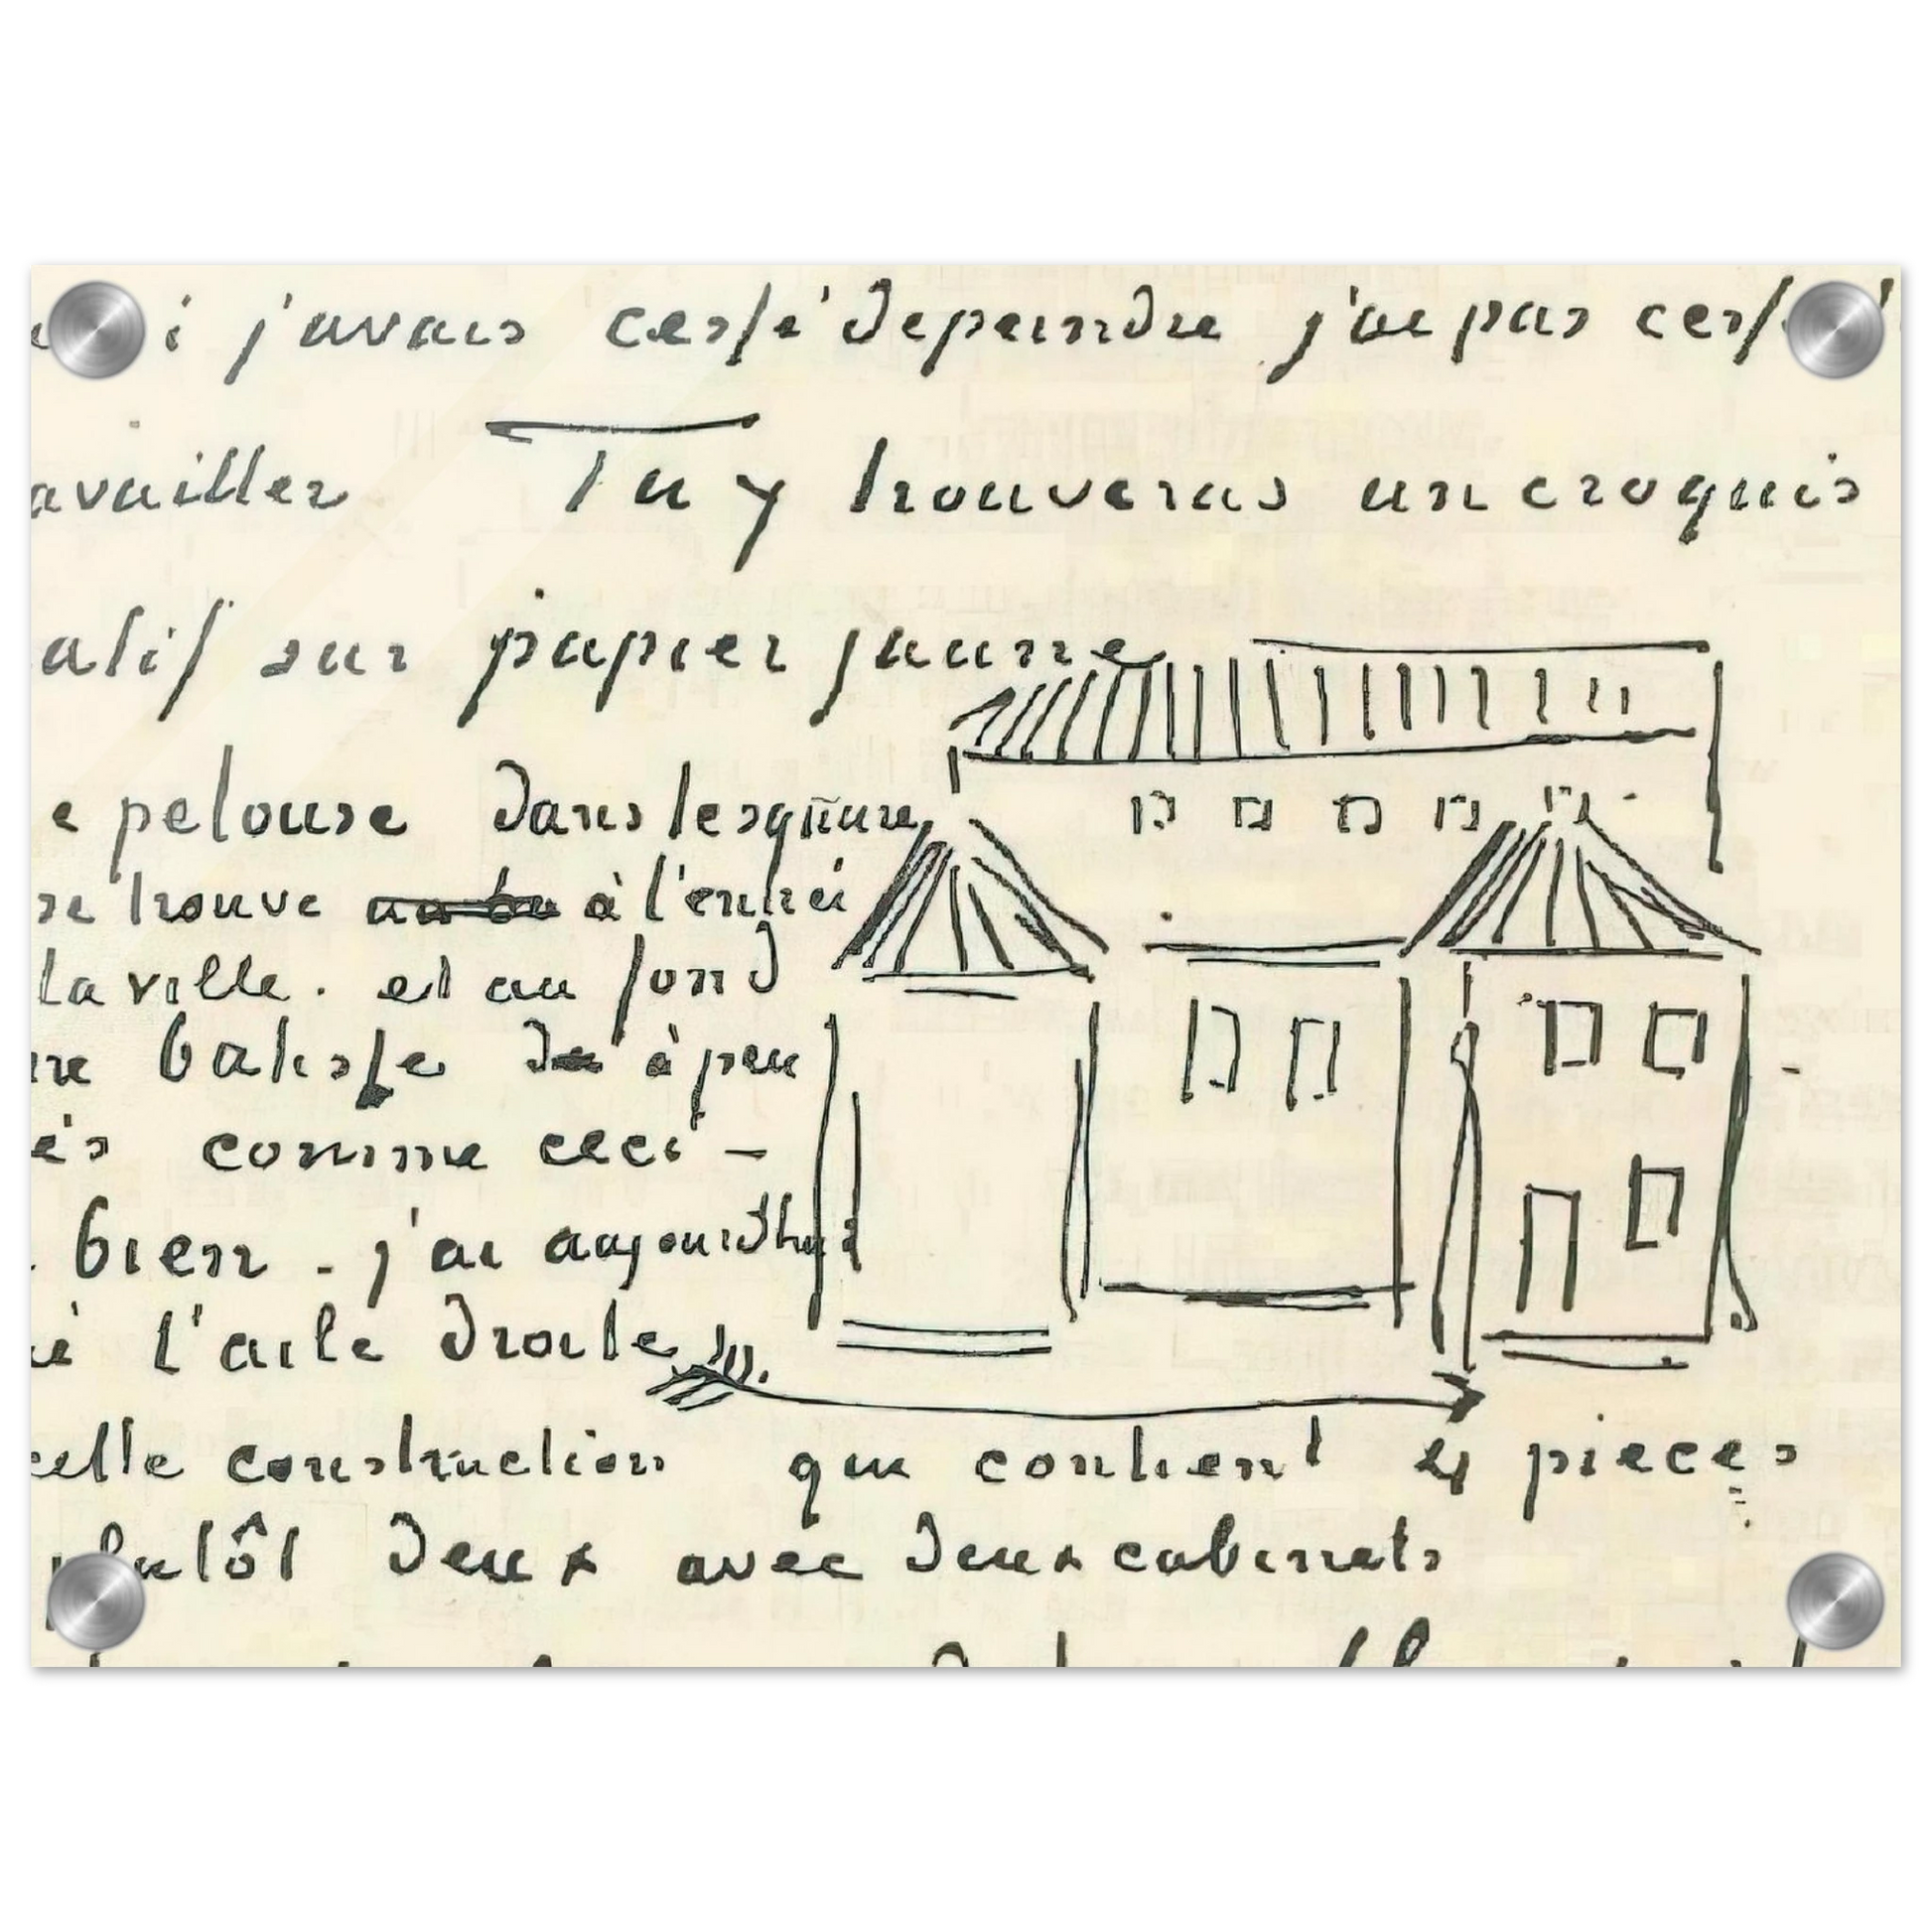 i j'avais cessé de peindre j'ai pas cessé
availler Tu y trouveras un croquis
atif sur papier jaune
e pelouse dans le square
se trouve à l'entré
la ville. et au fond
ne batisse à peu
és comme ceci -
bien - j'ai aujourdhui
é l'aile droite
cette construction qui contient 4 pieces
plutôt deux avec deux cabinets